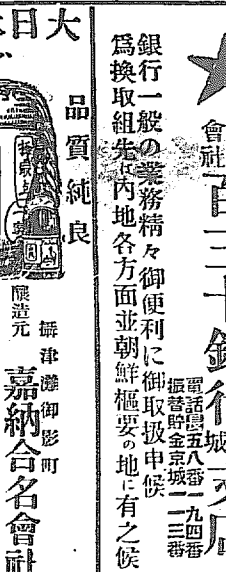 會社百三十銀行
城支店
電話長五八番一九四番
振替貯金京城一一三番
銀行一般の業務精々御便利に御取扱申候
爲換取組先は內地各方面並朝鮮樞要の地に有之候
大日
品質純良
釀造元
攝津灘御影町
嘉納合名會社